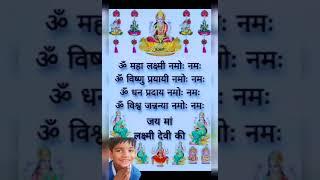 ॐ महा लक्ष्मी नमोः नमः
ॐ विष्णु प्रयायी नमोः नमः
ॐ धन प्रदाय नमोः नमः
ॐ विश्व जन्नन्या नमोः नमः
जय मां
लक्ष्मी देवी की